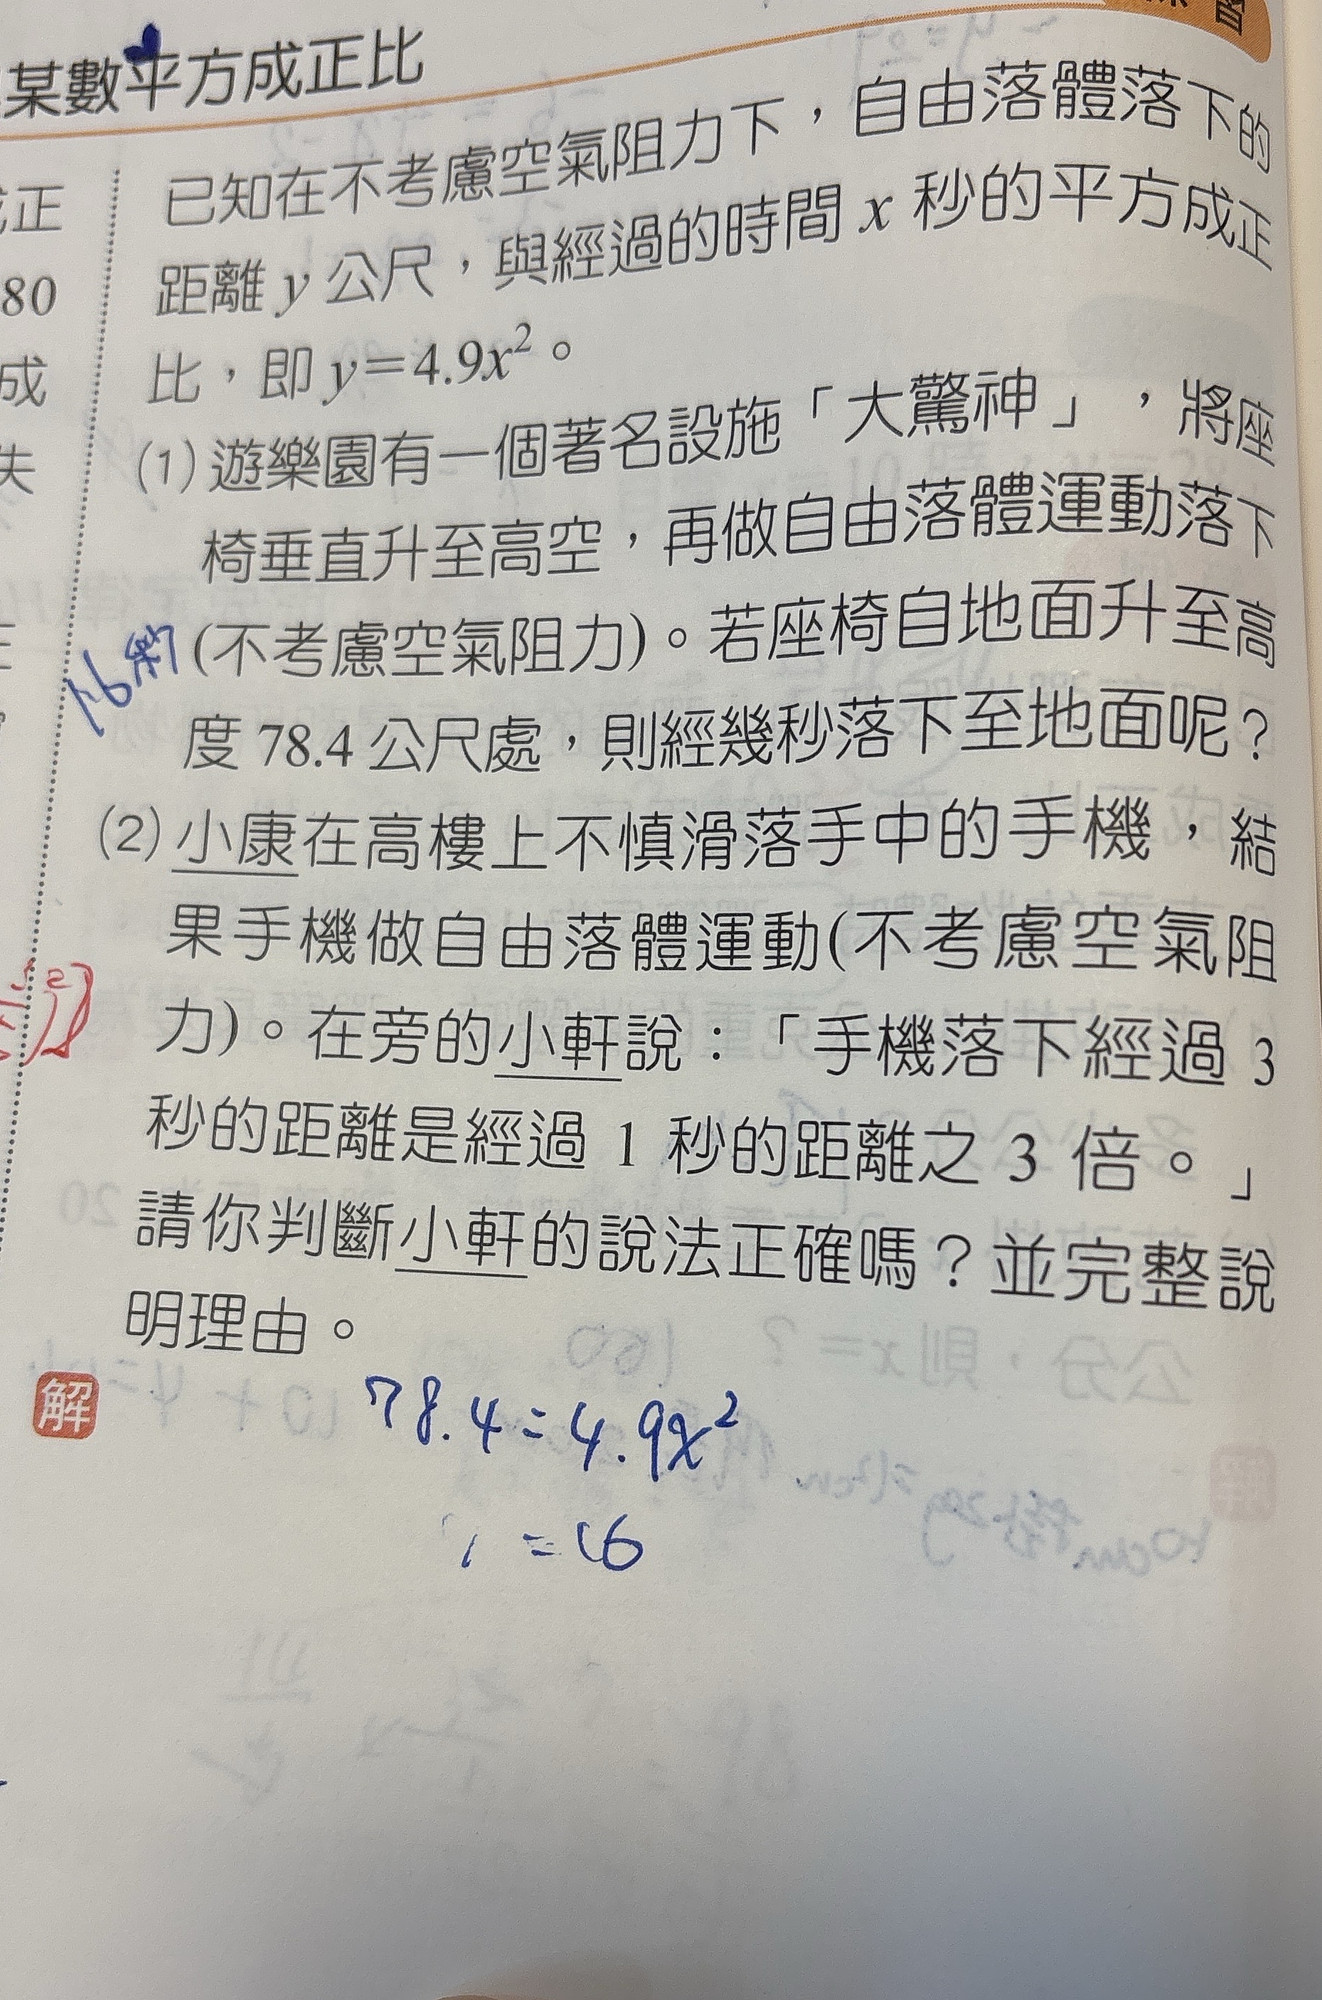 某數平方成正比
已知在不考慮空氣阻力下，自由落體落下的
距離 y 公尺，與經過的時間 x 秒的平方成正
比，即 y＝4.9x²。
(1) 遊樂園有一個著名設施「大驚神」，將座
椅垂直升至高空，再做自由落體運動落下
(不考慮空氣阻力)。若座椅自地面升至高
度 78.4 公尺處，則經幾秒落下至地面呢？
16秒
(2) 小康在高樓上不慎滑落手中的手機，結
果手機做自由落體運動(不考慮空氣阻
力)。在旁的小軒說：「手機落下經過 3
秒的距離是經過 1 秒的距離之 3 倍。」
請你判斷小軒的說法正確嗎？並完整說
明理由。
解
78.4=4.9x²
=16
正
80
成
失